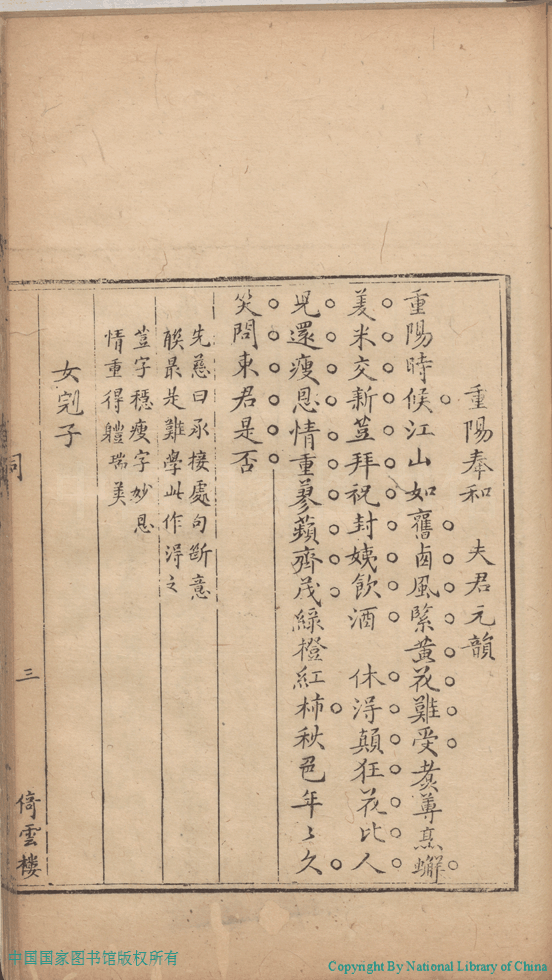 重陽奉和 夫君元韻
重陽時候江山如舊鹵風緊黃花難受煑蓴烹蠏
羙米交新荳拜祝封姨飲酒 休得顛狂花比人
兒還瘦恩情重蓼蘋齊茂綠橙紅柿秋色年〻久
笑問東君是否
先慈曰承接處句斷意
䏻最是難學此作淂之
荳字穩瘦字妙恩
情重得軆瑞羙
女剜子
詞
三
倚雲樓
中国国家图书馆版权所有
Copyright By National Library of China